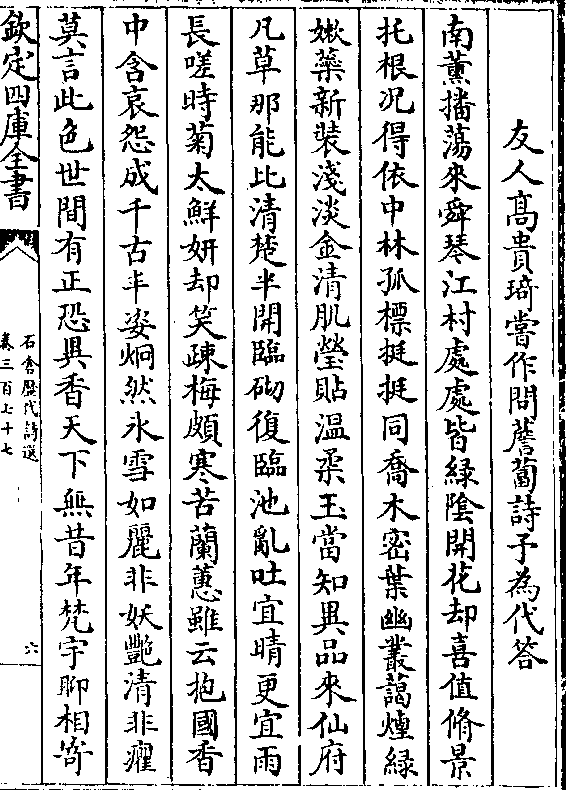 友人髙貴琦嘗作問薝蔔詩予為代答
南薰播蕩來舜琴江村處處皆緑陰開花却喜值脩景
托根况得依中林孤標挺挺同喬木密葉幽叢藹煙緑
嫰蘂新裝淺淡金清肌瑩貼温柔玉當知異品來仙府
凡草那能比清楚半開臨砌復臨池亂吐宜晴更宜雨
長嗟時菊太鮮妍却笑疎梅頗寒苦蘭蕙雖云抱國香
中含哀怨成千古丰姿炯然氷雪如麗非妖艷清非癯
莫言此色世間有正恐異香天下無昔年梵宇聊相寄
欽定四庫全書
石倉歷代詩選
卷三百七十七
六